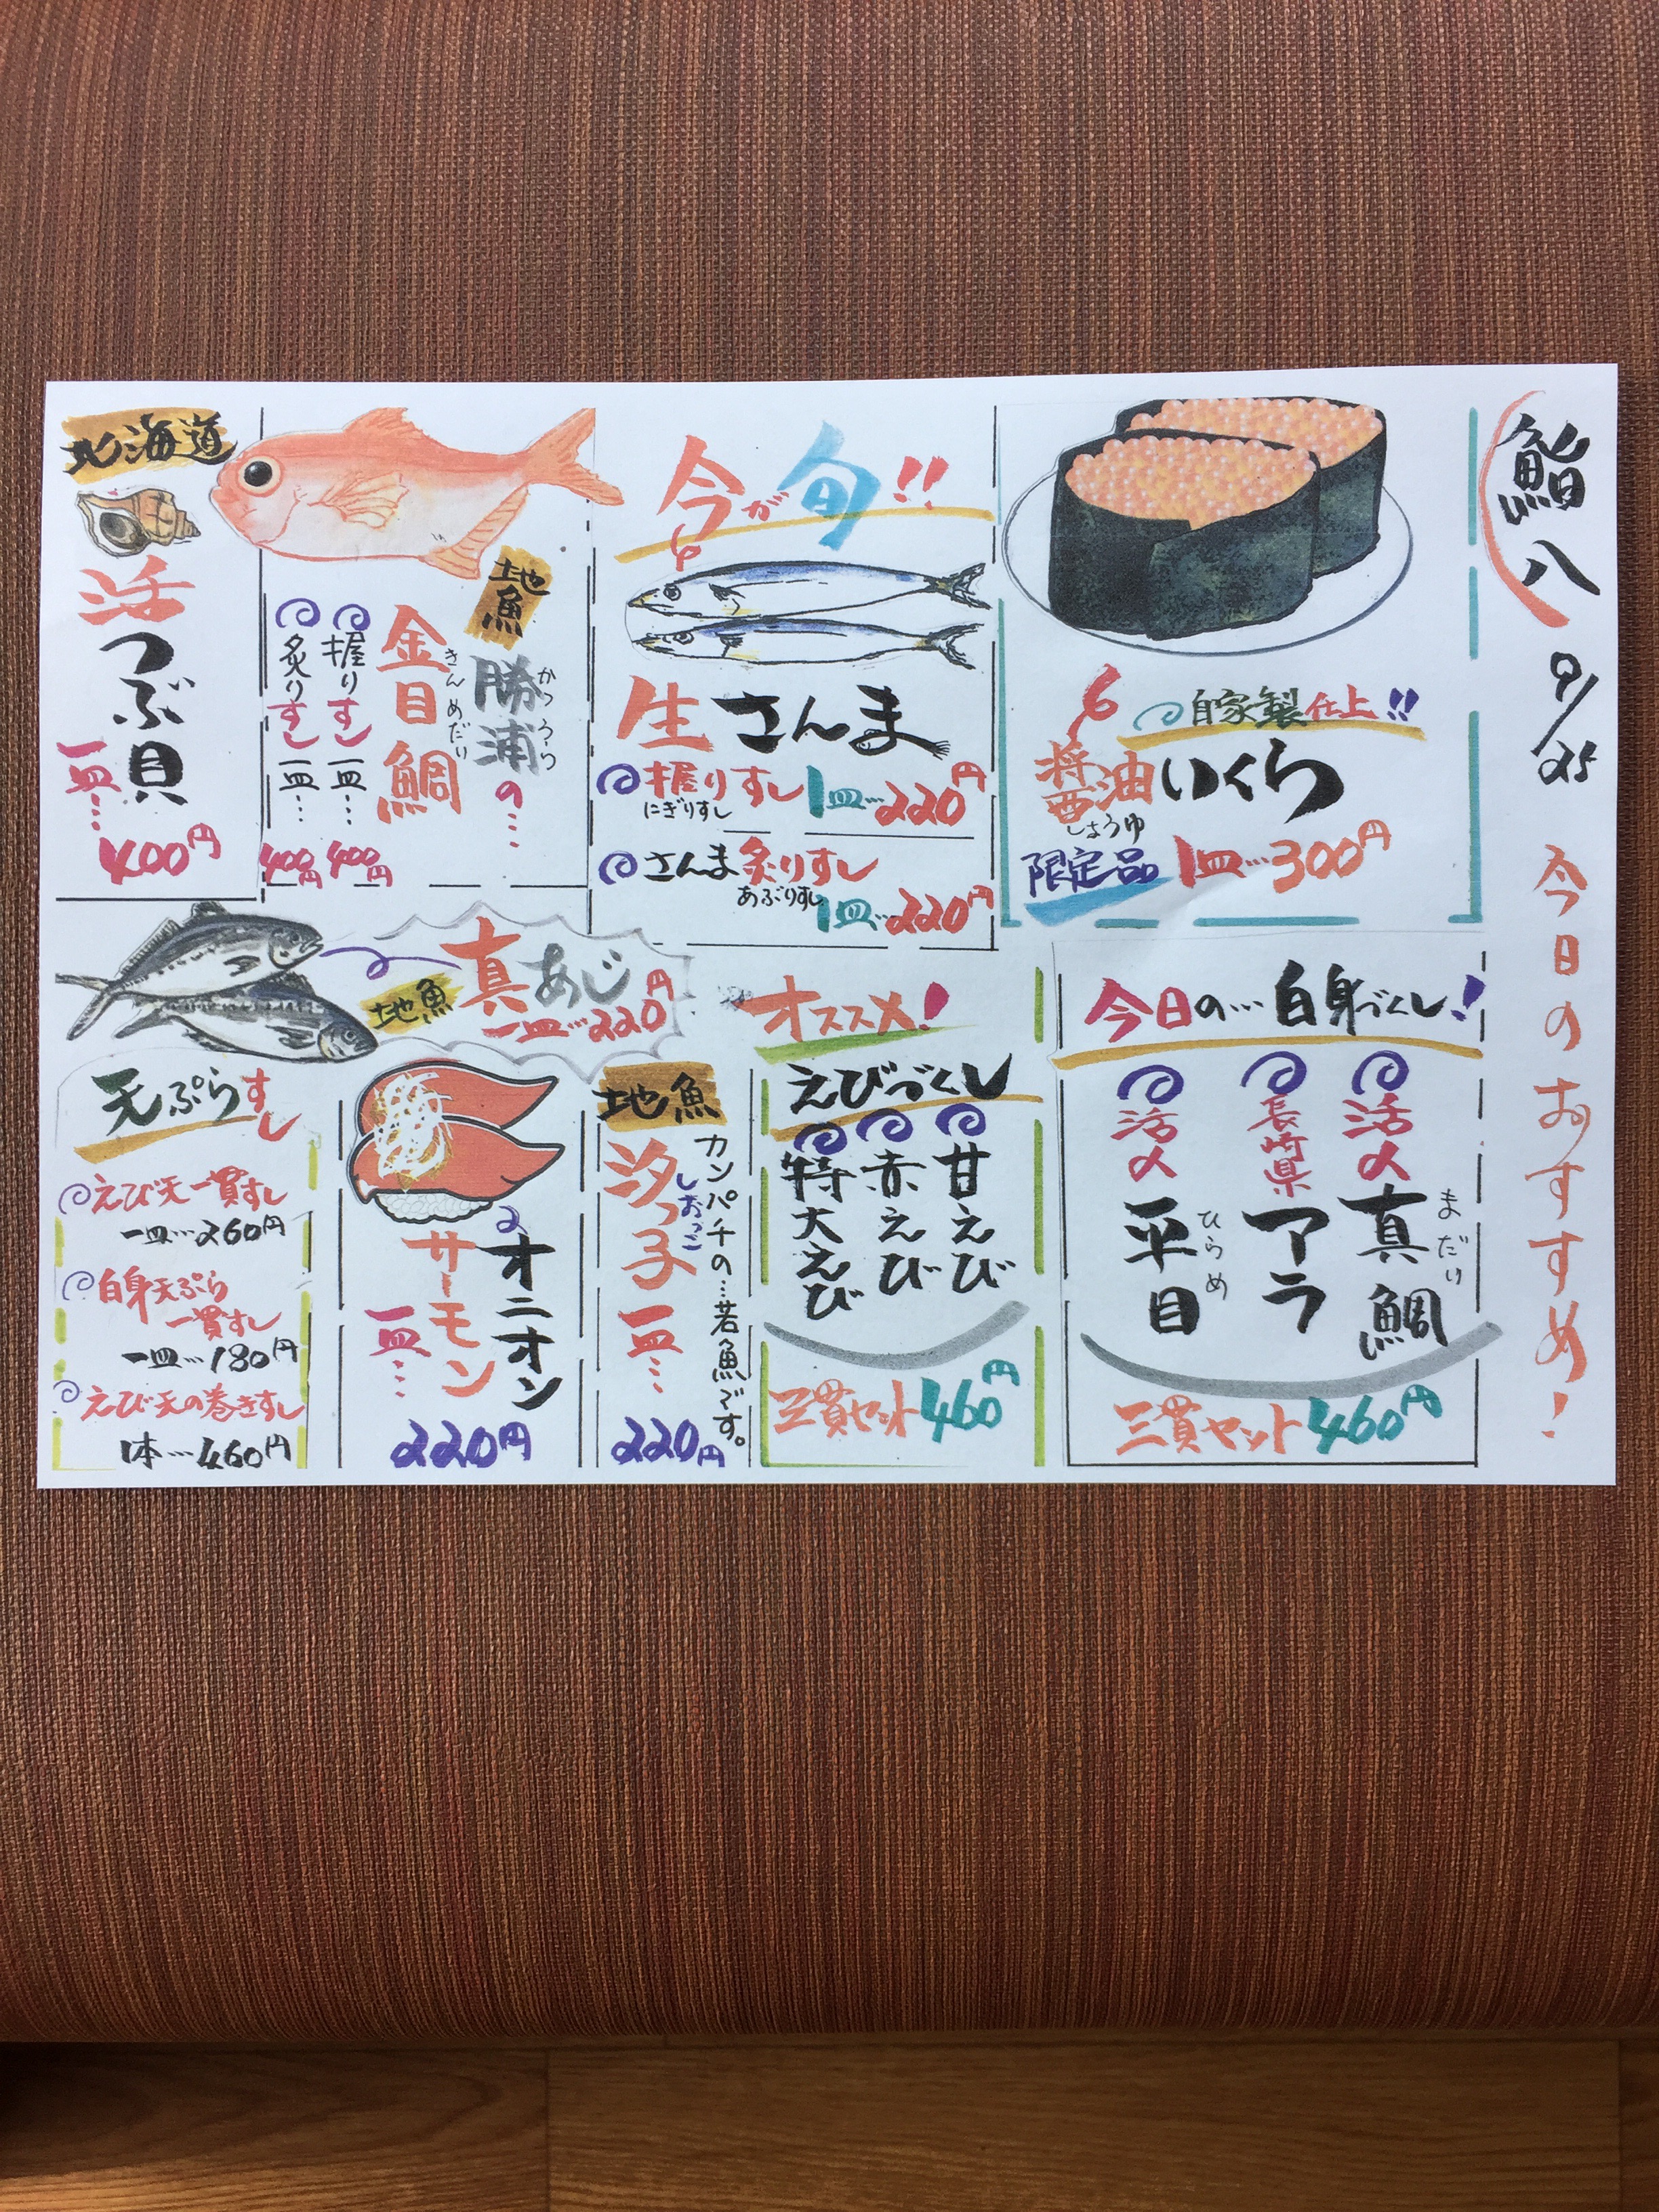 鮨八 9/25 今日のおすすめ!
自家製仕上!!
醤油いくら
しょうゆ
限定品 1皿…300円
今が旬!!
生さんま
握りすし 1皿…220円
にぎりすし
さんま炙りすし
あぶりすし
1皿…220円
地魚
勝浦の…
かつうら
金目鯛
きんめだい
握りすし 一皿… 400円
炙りすし 一皿… 400円
北海道
活つぶ貝
一皿…
400円
今日の…白身づくし!
活〆真鯛
まだい
長崎県アラ
活〆平目
ひらめ
三貫セット460円
オススメ!
えびづくし
甘えび
赤えび
特大えび
三貫セット460円
地魚 真あじ
一皿…220円
地魚
カンパチの…若魚です。
汐っ子
しおっこ
一皿…
220円
オニオン
サーモン
一皿…
220円
天ぷらすし
えび天一貫すし
一皿…260円
白身天ぷら
一貫すし
一皿…180円
えび天の巻きすし
1本…460円